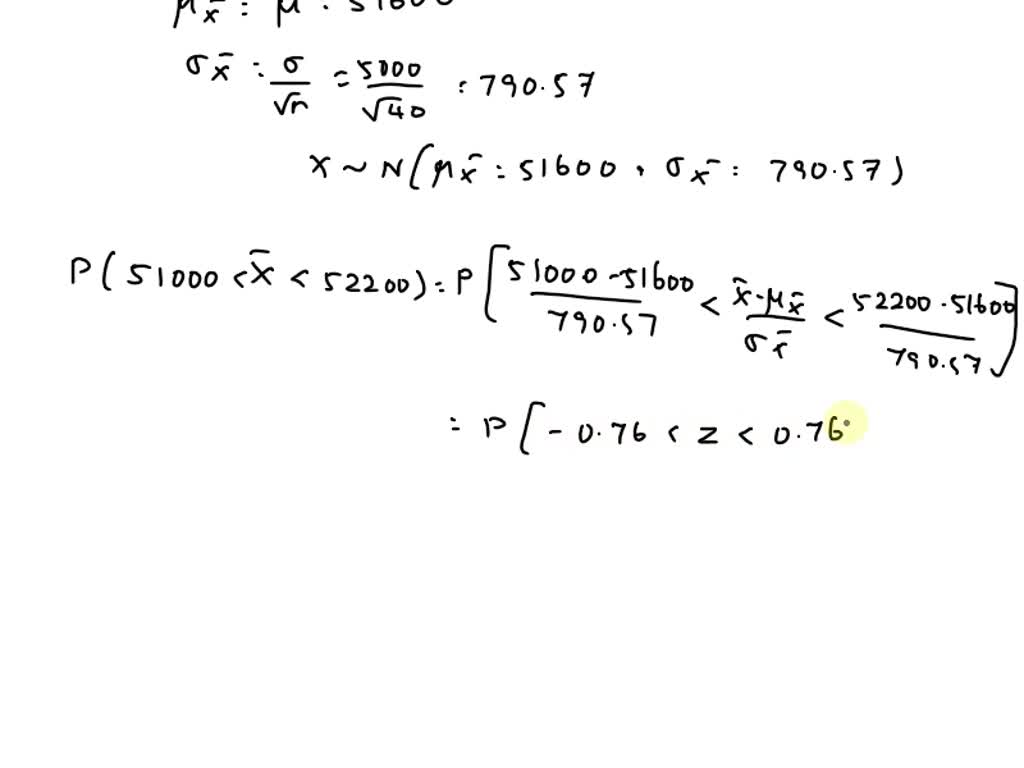 μx̄ : μ : 51600
σx̄ : σ/√n = 5000/√40 : 790.57
X ~ N(μx̄ : 51600, σx̄ : 790.57)
P(51000 < x̄ < 52200) = P[51000 - 51600/790.57 < x̄ - μx̄/σx̄ < 52200 - 51600/790.57]
= P[-0.76 < z < 0.76